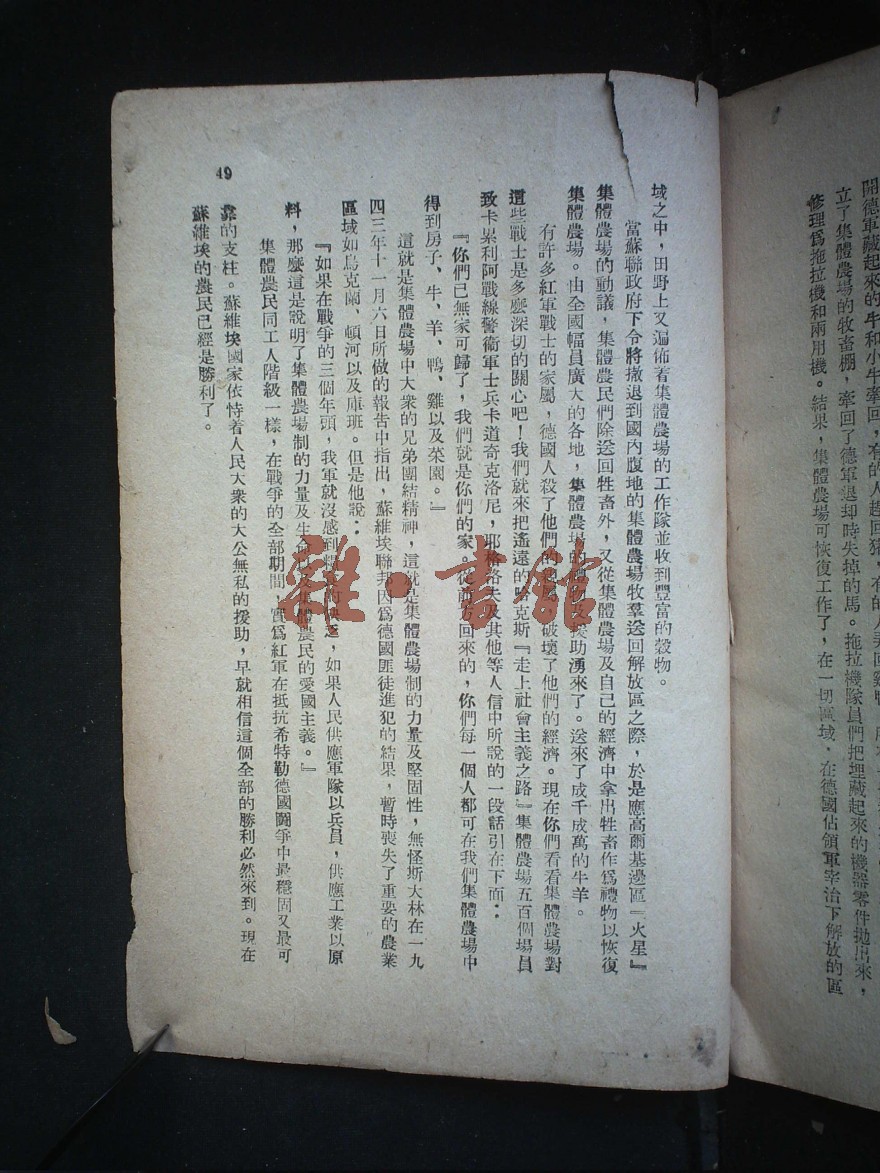 開德軍藏起來的牛和小牛牽回,有的人趕回猪,有的人弄回雞鴨
立了集體農場的牧畜棚,牽回了德軍退却時失掉的馬。拖拉機隊員們把埋藏起來的機器零件拋出來,
修理爲拖拉機和兩用機。結果,集體農場可恢復工作了,在一切區域,在德國佔領軍宰治下解放的區
域之中,田野上又遍佈着集體農場的工作隊並收到豐富的穀物。
當蘇聯政府下令將撤退到國內腹地的集體農場牧羣送回解放區之際,於是應高爾基邊區『火星』
集體農場的動議,集體農民們除送回牲畜外,又從集體農場及自己的經濟中拿出牲畜作爲禮物以恢復
集體農場。由全國幅員廣大的各地,集體農場的禮物及援助湧來了。送來了成千成萬的牛羊。
有許多紅軍戰士的家屬,德國人殺了他們的 破壞了他們的經濟。現在你們看看集體農場對
這些戰士是多麽深切的關心吧!我們就來把遙遠的哈克斯『走上社會主義之路』集體農場五百個場員
致卡累利阿戰線警衛軍士兵卡道奇克洛尼,耶格洛夫及其他等人信中所說的一段話引在下面:
『你們已無家可歸了,我們就是你們的家。從前方回來的,你們每一個人都可在我們集體農場中
得到房子、牛、羊、鴨、雞以及菜園。』
這就是集體農場中大衆的兄弟團結精神,這就是集體農場制的力量及堅固性,無怪斯大林在一九
四三年十一月六日所做的報告中指出,蘇維埃聯邦因爲德國匪徒進犯的結果,暫時喪失了重要的農業
區域如烏克蘭、頓河以及庫班。但是他說:
『如果在戰爭的三個年頭,我軍就沒感到糧食的缺乏,如果人民供應軍隊以兵員,供應工業以原
料,那麼這是說明了集體農場制的力量及生命力及集體農民的愛國主義。』
集體農民同工人階級一樣,在戰爭的全部期間,實爲紅軍在抵抗希特勒德國鬪爭中最穩固又最可
靠的支柱。蘇維埃國家依恃着人民大衆的大公無私的援助,早就相信這個全部的勝利必然來到。現在
蘇維埃的農民已經是勝利了。
49
雜·書館